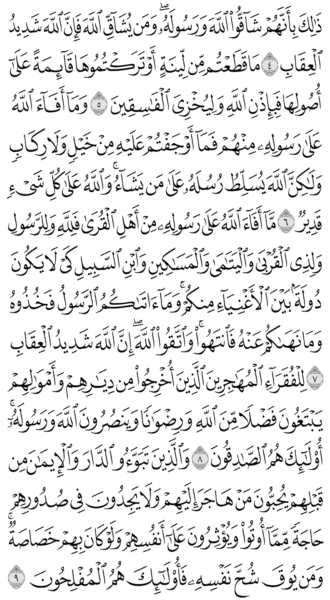 ذَٰلِكَ بِأَنَّهُمْ شَاقُّوا۟ ٱللَّهَ وَرَسُولَهُۥ ۖ وَمَن يُشَآقِّ ٱللَّهَ فَإِنَّ ٱللَّهَ شَدِيدُ
ٱلْعِقَابِ ٤ مَا قَطَعْتُم مِّن لِّينَةٍ أَوْ تَرَكْتُمُوهَا قَآئِمَةً عَلَىٰٓ
أُصُولِهَا فَبِإِذْنِ ٱللَّهِ وَلِيُخْزِىَ ٱلْفَـٰسِقِينَ ٥ وَمَآ أَفَآءَ ٱللَّهُ
عَلَىٰ رَسُولِهِۦ مِنْهُمْ فَمَآ أَوْجَفْتُمْ عَلَيْهِ مِنْ خَيْلٍ وَلَا رِكَابٍ
وَلَـٰكِنَّ ٱللَّهَ يُسَلِّطُ رُسُلَهُۥ عَلَىٰ مَن يَشَآءُ ۚ وَٱللَّهُ عَلَىٰ كُلِّ شَىْءٍ
قَدِيرٌ ٦ مَّآ أَفَآءَ ٱللَّهُ عَلَىٰ رَسُولِهِۦ مِنْ أَهْلِ ٱلْقُرَىٰ فَلِلَّهِ وَلِلرَّسُولِ
وَلِذِى ٱلْقُرْبَىٰ وَٱلْيَتَـٰمَىٰ وَٱلْمَسَـٰكِينِ وَٱبْنِ ٱلسَّبِيلِ كَىْ لَا يَكُونَ
دُولَةًۢ بَيْنَ ٱلْأَغْنِيَآءِ مِنكُمْ ۚ وَمَآ ءَاتَىٰكُمُ ٱلرَّسُولُ فَخُذُوهُ
وَمَا نَهَىٰكُمْ عَنْهُ فَٱنتَهُوا۟ ۚ وَٱتَّقُوا۟ ٱللَّهَ ۖ إِنَّ ٱللَّهَ شَدِيدُ ٱلْعِقَابِ
٧ لِلْفُقَرَآءِ ٱلْمُهَـٰجِرِينَ ٱلَّذِينَ أُخْرِجُوا۟ مِن دِيَـٰرِهِمْ وَأَمْوَٰلِهِمْ
يَبْتَغُونَ فَضْلًا مِّنَ ٱللَّهِ وَرِضْوَٰنًا وَيَنصُرُونَ ٱللَّهَ وَرَسُولَهُۥٓ ۚ
أُو۟لَـٰٓئِكَ هُمُ ٱلصَّـٰدِقُونَ ٨ وَٱلَّذِينَ تَبَوَّءُو ٱلدَّارَ وَٱلْإِيمَـٰنَ مِن
قَبْلِهِمْ يُحِبُّونَ مَنْ هَاجَرَ إِلَيْهِمْ وَلَا يَجِدُونَ فِى صُدُورِهِمْ
حَاجَةً مِّمَّآ أُوتُوا۟ وَيُؤْثِرُونَ عَلَىٰٓ أَنفُسِهِمْ وَلَوْ كَانَ بِهِمْ خَصَاصَةٌ ۚ
وَمَن يُوقَ شُحَّ نَفْسِهِۦ فَأُو۟لَـٰٓئِكَ هُمُ ٱلْمُفْلِحُونَ ٩